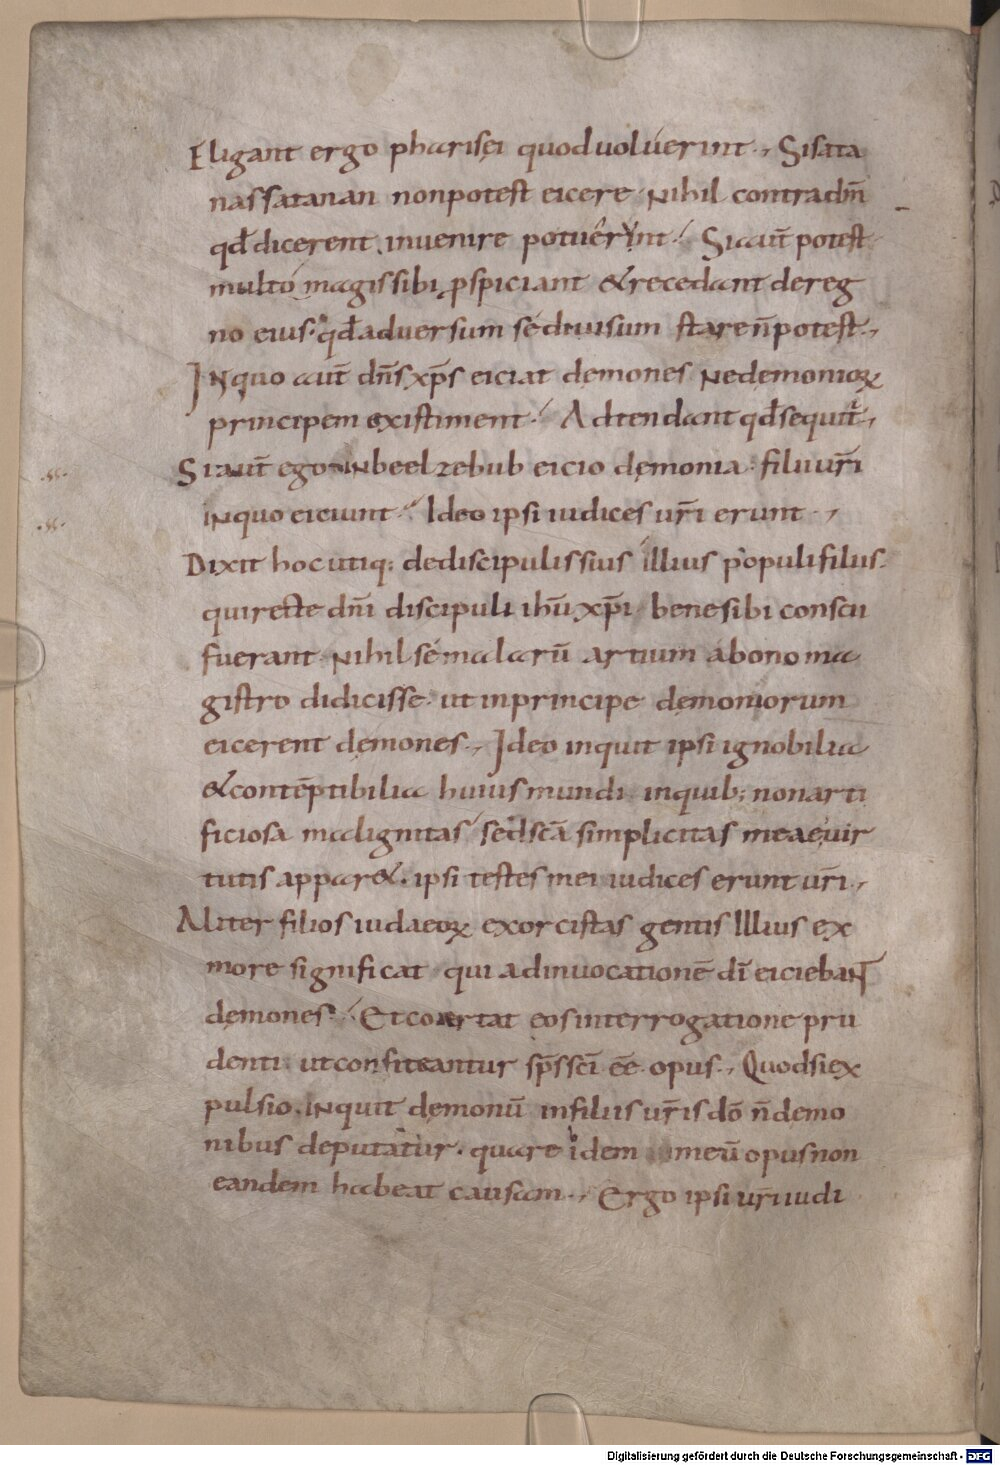 Eligant ergo pharisęi quod voluerint., Si sata
nas satanan non potest eicere. Nihil contra dñm
qđ dicerent invenire potuerint. Si aut̄ potest
multo magis sibi ꝓspiciant & recedant de reg
no eius. qđ adversum se divisum stare ñ potest.,
In quo aut̄ dñs xp̄s eiciat dęmones Ne demonioꝝ
principem existiment. Adtendant qđ sequit̄.,
Si aut̄ ego in beelzebub eicio dęmonia. filii vr̄i
in quo eiciunt. Ideo ipsi iudices vr̄i erunt.,
Dixit hoc utiq; de discipulis suis illius populi filiis.
qui recte dñi discipuli ihū xp̄i bene sibi conscii
fuerant. Nihil se malarū artium a bono ma
gistro didicisse. ut in principe dęmoniorum
eicerent dęmones., Ideo inquit ipsi ignobilia
& contēptibilia huius mundi. in quib; non arti
ficiosa malignitas sed sc̄a simplicitas meae vir
tutis appar&. ipsi testes mei iudices erunt vr̄i.,
Aliter filios iudaeoꝝ exorcistas gentis Illius ex
more significat qui ad invocationē dī eiciebant
dęmones. Et coartat eos interrogatione pru
denti. ut confiteantur sp̄s sc̄i eē opus., Quod si ex
pulsio. inquit dęmonū in filiis vr̄is dō ñ demo
nibus deputatur. quare idem in meū opus non
eandem habeat causam., Ergo ipsi vr̄i iudi
Digitalisierung gefördert durch die Deutsche Forschungsgemeinschaft - DFG